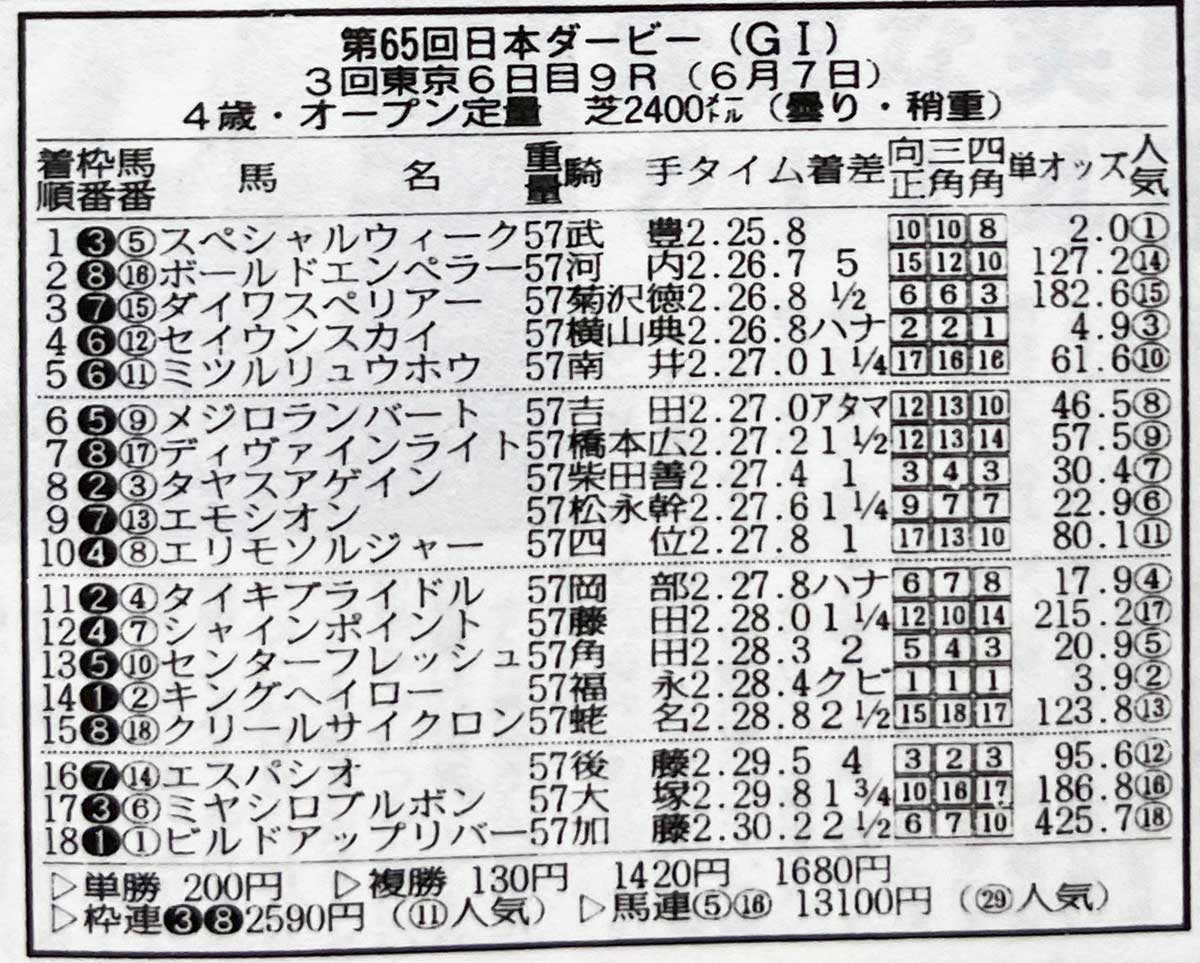 第65回日本ダービー(GⅠ)
3回東京6日目9R(6月7日)
4歳・オープン定量 芝2400㍍(曇り・稍重)
着順 枠番 馬番 馬名 重量 騎手 タイム 着差 向正 三角 四角 単オッズ 人気
1 ❸ ⑤ スペシャルウィーク 57 武豊 2.25.8 10 10 8 2.0 ①
2 ❽ ⑯ ボールドエンペラー 57 河内 2.26.7 5 15 12 10 127.2 ⑭
3 ❼ ⑮ ダイワスペリアー 57 菊沢徳 2.26.8 1/2 6 6 3 182.6 ⑮
4 ❻ ⑫ セイウンスカイ 57 横山典 2.26.8 ハナ 2 2 1 4.9 ③
5 ❻ ⑪ ミツルリュウホウ 57 南井 2.27.0 1 1/4 17 16 16 61.6 ⑩
6 ❺ ⑨ メジロランバート 57 吉田 2.27.0 アタマ 12 13 10 46.5 ⑧
7 ❽ ⑰ ディヴァインライト 57 橋本広 2.27.2 1 1/2 12 13 14 57.5 ⑨
8 ❷ ③ タヤスアゲイン 57 柴田善 2.27.4 1 3 4 3 30.4 ⑦
9 ❼ ⑬ エモシオン 57 松永幹 2.27.6 1 1/4 9 7 7 22.9 ⑥
10 ❹ ⑧ エリモソルジャー 57 四位 2.27.8 1 17 13 10 80.1 ⑪
11 ❷ ④ タイキブライドル 57 岡部 2.27.8 ハナ 6 7 8 17.9 ④
12 ❹ ⑦ シャインポイント 57 藤田 2.28.0 1 1/4 12 10 14 215.2 ⑰
13 ❺ ⑩ センターフレッシュ 57 角田 2.28.3 2 5 4 3 20.9 ⑤
14 ❶ ② キングヘイロー 57 福永 2.28.4 クビ 1 1 1 3.9 ②
15 ❽ ⑱ クリールサイクロン 57 蛯名 2.28.8 2 1/2 15 18 17 123.8 ⑬
16 ❼ ⑭ エスパシオ 57 後藤 2.29.5 4 3 2 3 95.6 ⑫
17 ❸ ⑥ ミヤシロブルボン 57 大塚 2.29.8 1 3/4 10 16 17 186.8 ⑯
18 ❶ ① ビルドアップリバー 57 加藤 2.30.2 2 1/2 6 7 10 425.7 ⑱
▷単勝 200円 ▷複勝 130円 1420円 1680円
▷枠連❸❽2590円(⑪人気) ▷馬連⑤⑯ 13100円(㉙人気)